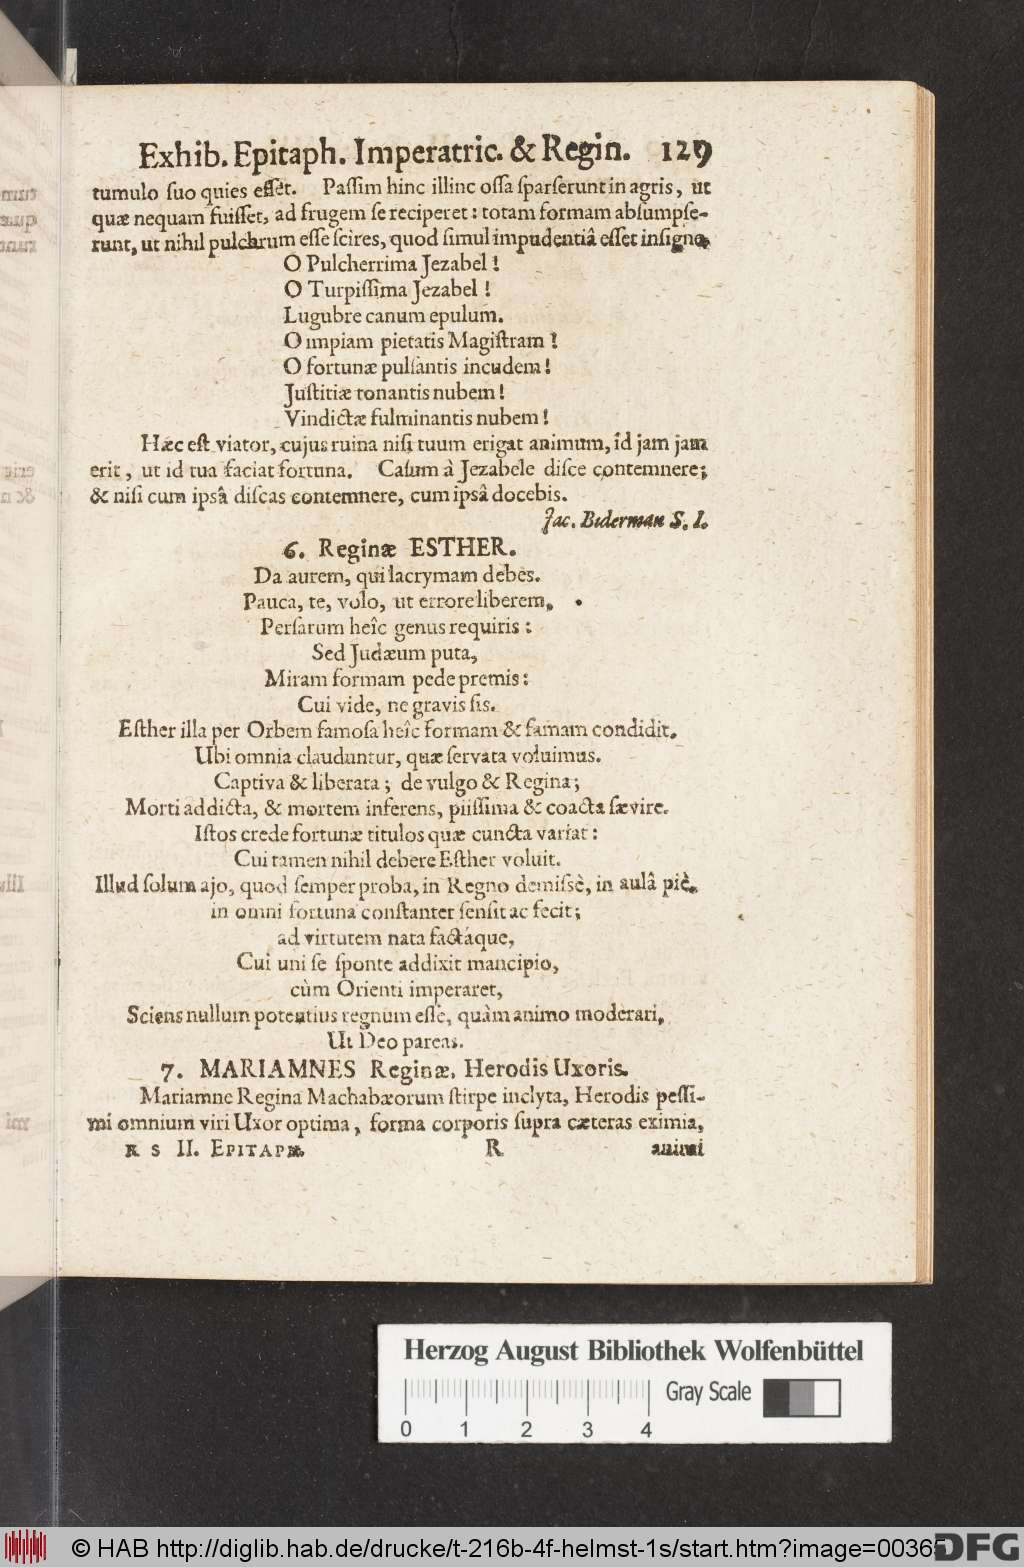 Exhib. Epitaph. Imperatric. & Regin. 129
tumulo ſuo quies eſſet. Paſſim hinc illinc oſſa ſparſerunt in agris, ut
quæ nequam fuiſſet, ad frugem ſe reciperet: totam formam abſumpſe-
runt, ut nihil pulchrum eſſe ſcires, quod ſimul impudentiâ eſſet inſigne.
O Pulcherrima Jezabel!
O Turpiſſima Jezabel!
Lugubre canum epulum.
O impiam pietatis Magiſtram!
O fortunæ pulſantis incudem!
Juſtitiæ tonantis nubem!
Vindictæ fulminantis nubem!
Hæc eſt viator, cujus ruina niſi tuum erigat animum, id jam jam
erit, ut id tua faciat fortuna. Caſum à Jezabele diſce contemnere;
& niſi cum ipsâ diſcas contemnere, cum ipsâ docebis.
Jac. Biderman S. I.
6. Reginæ ESTHER.
Da aurem, qui lacrymam debes.
Pauca, te, volo, ut errore liberem.
Perſarum heîc genus requiris:
Sed Judæum puta,
Miram formam pede premis:
Cui vide, ne gravis ſis.
Eſther illa per Orbem famoſa heîc formam & famam condidit.
Ubi omnia clauduntur, quæ ſervata voluimus.
Captiva & liberata; de vulgo & Regina;
Morti addicta, & mortem inferens, piiſſima & coacta ſævire.
Iſtos crede fortunæ titulos quæ cuncta variat:
Cui tamen nihil debere Eſther voluit.
Illud ſolum ajo, quod ſemper proba, in Regno demiſsè, in aulâ piè,
in omni fortuna conſtanter ſenſit ac fecit;
ad virtutem nata factáque,
Cui uni ſe ſponte addixit mancipio,
cùm Orienti imperaret,
Sciens nullum potentius regnum eſſe, quàm animo moderari,
Ut Deo pareas.
7. MARIAMNES Reginæ, Herodis Uxoris.
Mariamne Regina Machabæorum ſtirpe inclyta, Herodis peſſi-
mi omnium viri Uxor optima, forma corporis ſupra cæteras eximia,
R S II. EPITAPH. R animi
Herzog August Bibliothek Wolfenbüttel
Gray Scale
0 1 2 3 4
© HAB http://diglib.hab.de/drucke/t-216b-4f-helmst-1s/start.htm?image=00365
DFG